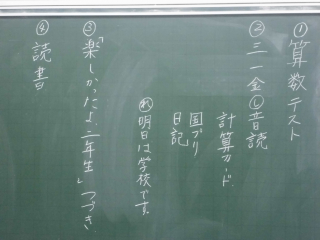 ①算数テスト
②三一金し音読
計算カード
国プリ
日記
れ明日は学校です。
③「楽しかったよ、二年生」つづき
④読書